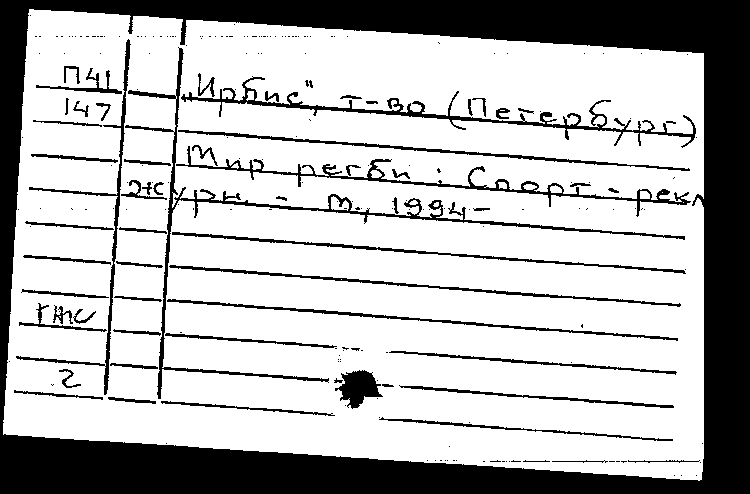 П41
147
„Ирбис", т-во (Петербург)
Мир регби : Спорт.-рекл
журн. - М., 1994-
ГЖ
2